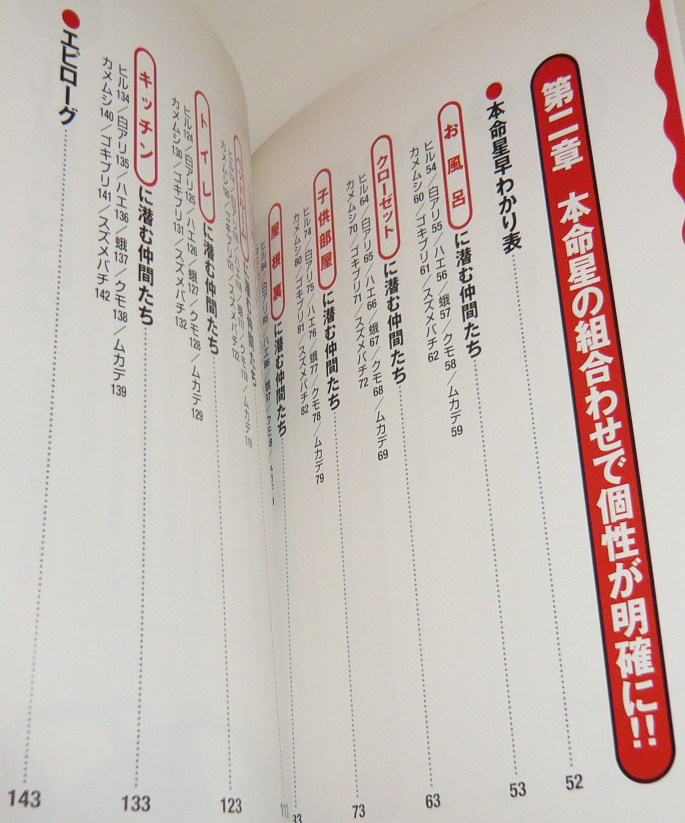 第二章 本命星の組合わせで個性が明確に!!
52
●本命星早わかり表
53
お風呂に潜む仲間たち
63
ヒル54/白アリ55/ハエ56/蛾57/クモ58/ムカデ59
カメムシ60/ゴキブリ61/スズメバチ62
クローゼットに潜む仲間たち
73
ヒル64/白アリ65/ハエ66/蛾67/クモ68/ムカデ69
カメムシ70/ゴキブリ71/スズメバチ72
子供部屋に潜む仲間たち
83
ヒル74/白アリ75/ハエ76/蛾77/クモ78/ムカデ79
カメムシ80/ゴキブリ81/スズメバチ82
屋根裏に潜む仲間たち
トイレに潜む仲間たち
123
ヒル124/白アリ125/ハエ126/蛾127/クモ128/ムカデ129
カメムシ130/ゴキブリ131/スズメバチ132
キッチンに潜む仲間たち
133
ヒル134/白アリ135/ハエ136/蛾137/クモ138/ムカデ139
カメムシ140/ゴキブリ141/スズメバチ142
●エピローグ
143